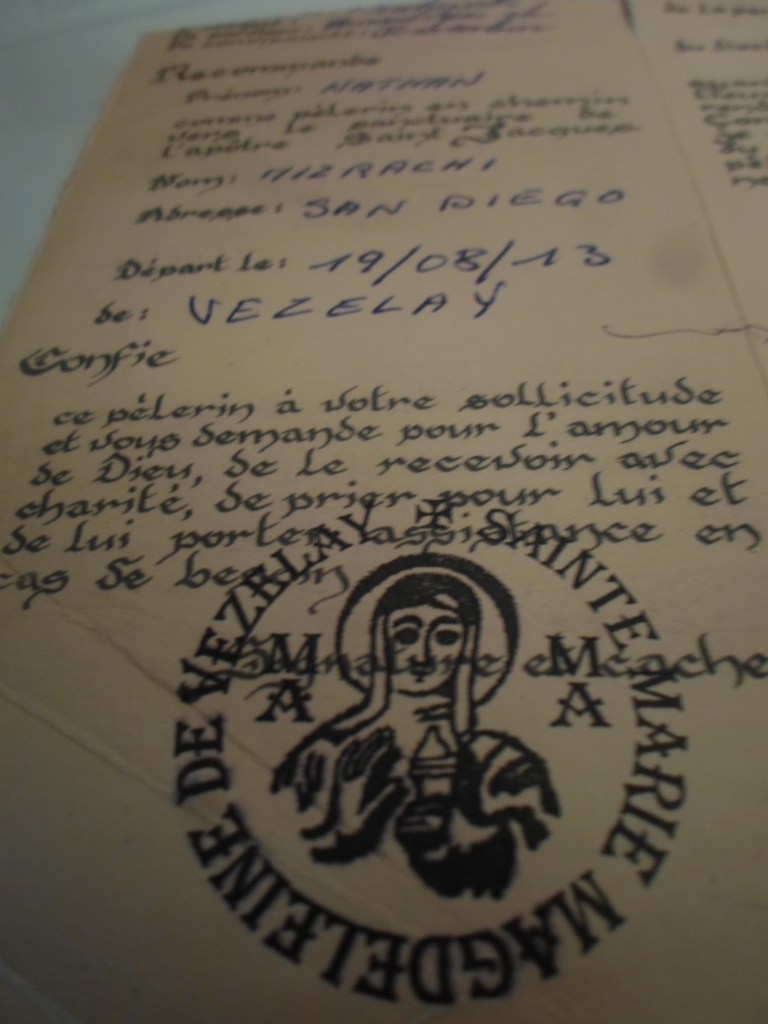 Recommande
Prénom: NATHAN
comme pèlerin en chemin
vers le sanctuaire de
l'apôtre Saint Jacques.
Nom: MIZRACHI
Adresse: SAN DIEGO
Départ le: 19/08/13
de: VEZELAY
Confie
ce pèlerin à votre sollicitude
et vous demande pour l'amour
de Dieu, de le recevoir avec
charité, de prier pour lui et
de lui porter assistance en
cas de besoin
Signature et cachet
✠ SAINTE MARIE MAGDELEINE DE VEZELAY
MA MA